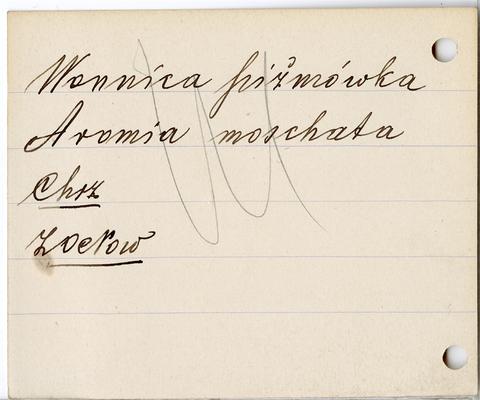 Wonnica piżmówka
Aromia moschata
Chrz